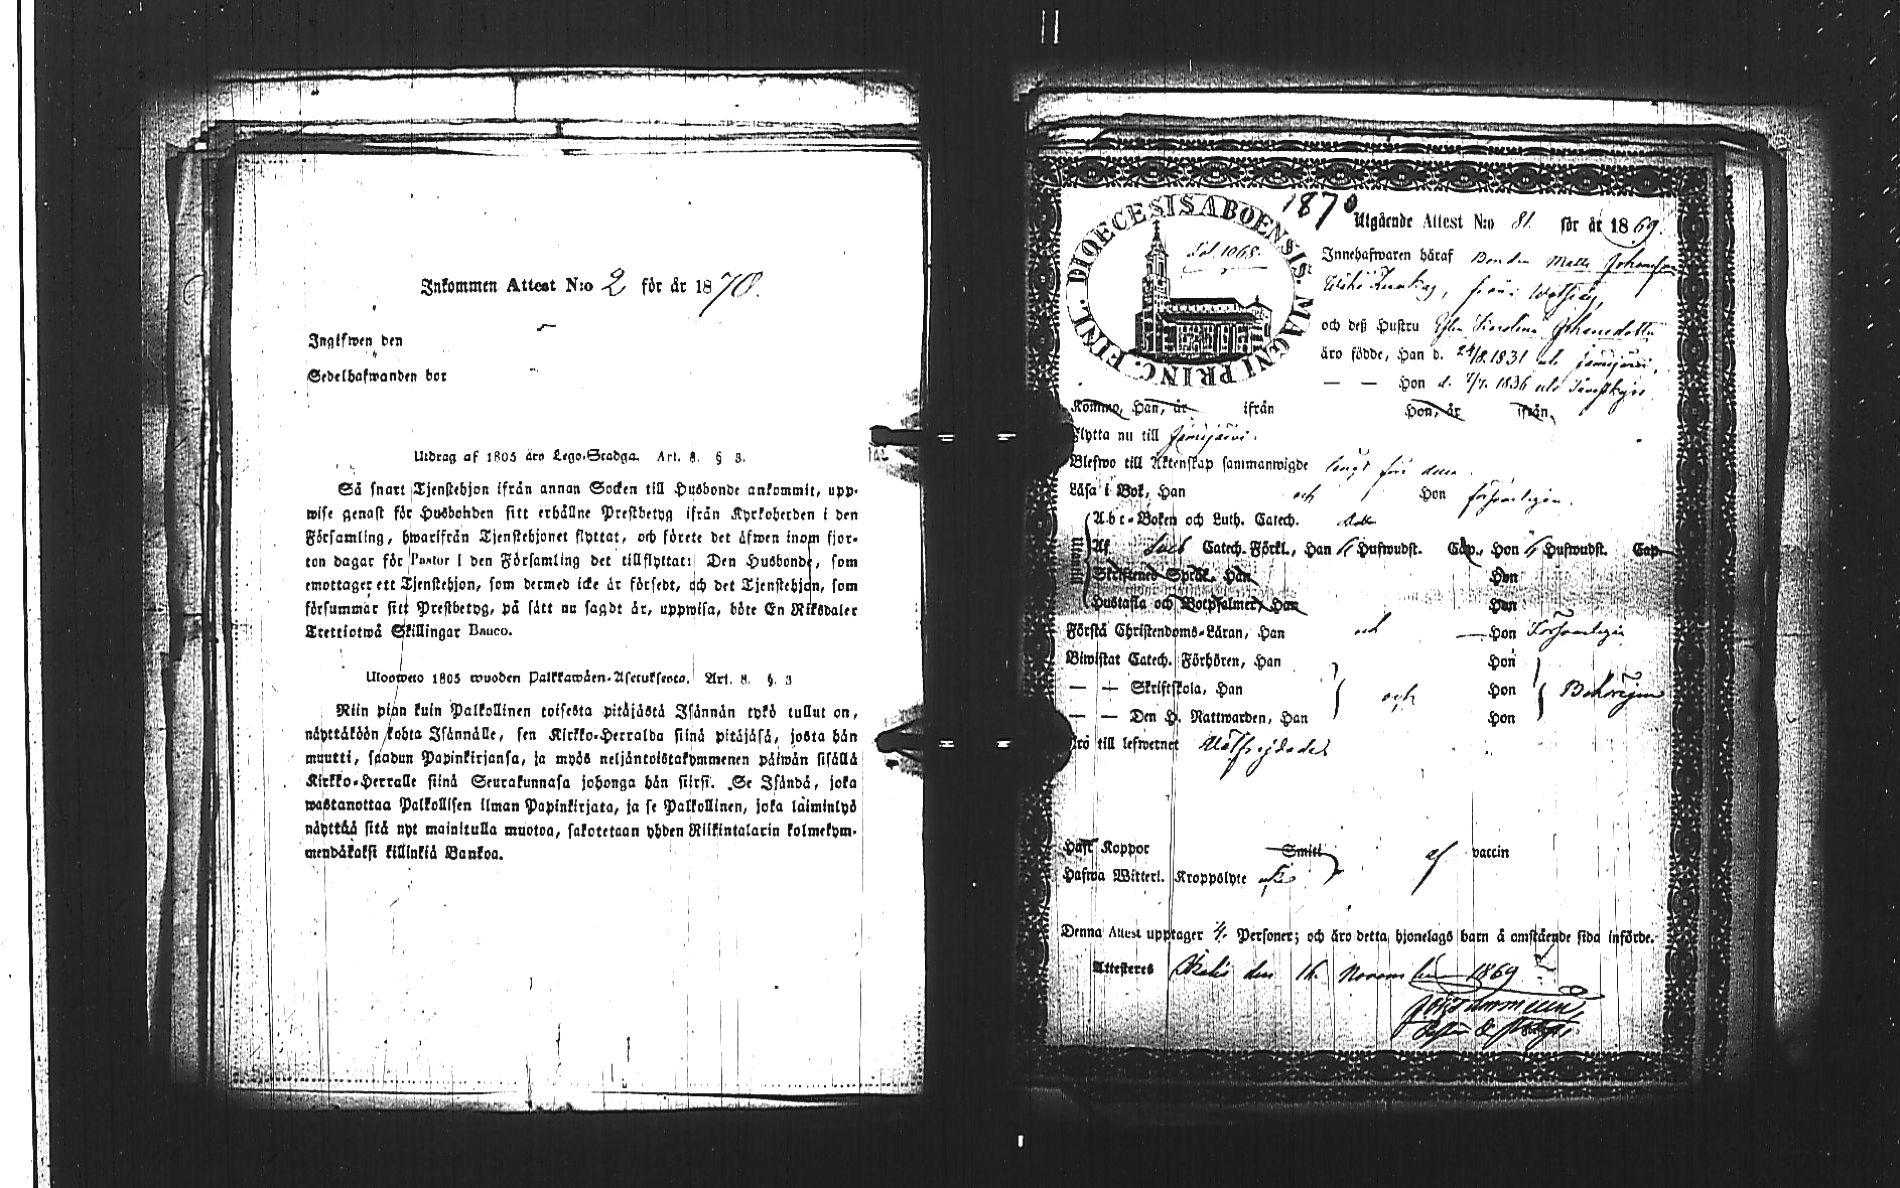 Inkommen Attest N:o 2 för år 1870.
Ingifwen den
Sedelhafwanden bor
Utdrag af 1805 års Lego-Stadga. Art. 8. § 3.
Så snart Tjenstehjon ifrån annan Socken till Husbonde ankommit, upp-
wise genast för Husbonden sitt erhållne Prestbetyg ifrån Kyrkoherden i den
Församling, hwarifrån Tjenstehjonet flyttat, och förete det äfwen inom fjor-
ton dagar för Pastor i den Församling det tillflyttat: Den Husbonde, som
emottager ett Tjenstehjon, som dermed icke är försedt, och det Tjenstehjon, som
försummar sitt Prestbetyg, på sätt nu sagdt är, uppwisa, böte En Riksdaler
Trettiotwå Skillingar Banco.
Ulosweto 1805 wuoden Palkkawäen-Asetuksesta. Art. 8. §. 3
Niin pian kuin Palkollinen toisesta pitäjästä Isännän tykö tullut on,
näyttäköön kohta Isännälle, sen Kirkko-Herralda siinä pitäjäsä, josta hän
muutti, saadun Papinkirjansa, ja myös neljäntoistakymmenen päiwän sisällä
Kirkko-Herralle siinä Seurakunnasa johonga hän siirsi. Se Isändä, joka
wastanottaa Palkollisen ilman Papinkirjata, ja se Palkollinen, joka laiminlyö
näyttää sitä nyt mainitulla muotoa, sakotetaan yhden Riikintalarin kolmekym-
mendäkaksi killinkiä Bankoa.
1870
FINL. DIOECESIS ABOENSIS. MAGNI PRINC.
Sid. 1068.
Utgående Attest N:o 81. för år 1869.
Innehafwaren häraf Bonden Matts Johansson
från
och deß Hustru Carolina Johansdotter
äro födde, Han d. 24/8 1831 uti Jämijärvi.
— — Hon d. 7/7. 1836 uti
Komne, Han, år ifrån Hon, år ifrån
Flytta nu till Jämijärvi.
Blefwo till Äktenskap sammanwigde långt före detta.
Läsa i Bok, Han och Hon försvarligen.
Utantill
A-b-c-Boken och Luth. Catech.
Af Catech. Förkl., Han Hufwudst. Cap., Hon Hufwudst. Cap.
Skriftenes Språk. Han Hon
Hustafla och Botpsalmer, Han Hon
Förstå Christendoms-Läran, Han och — Hon Försvarligen
Biwistat Catech. Förhören, Han Hon
— — Skriftskola, Han och Hon Behörigen
— — Den H. Nattwarden, Han Hon
Äro till lefwernet Välfrejdade
Haft Koppor Smitt af vaccin
Hafwa Witterl. Kroppslyte
Denna Attest upptager 4. Personer; och äro detta hjonelags barn å omstående sida införde.
Attesteras den 16. November 1869